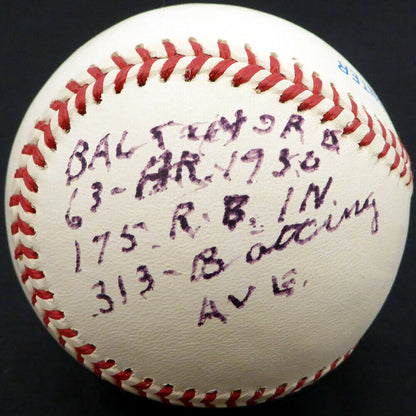 BALTIMORE
63-HR.1930
175.R.B.IN
313-Batting
AVG.